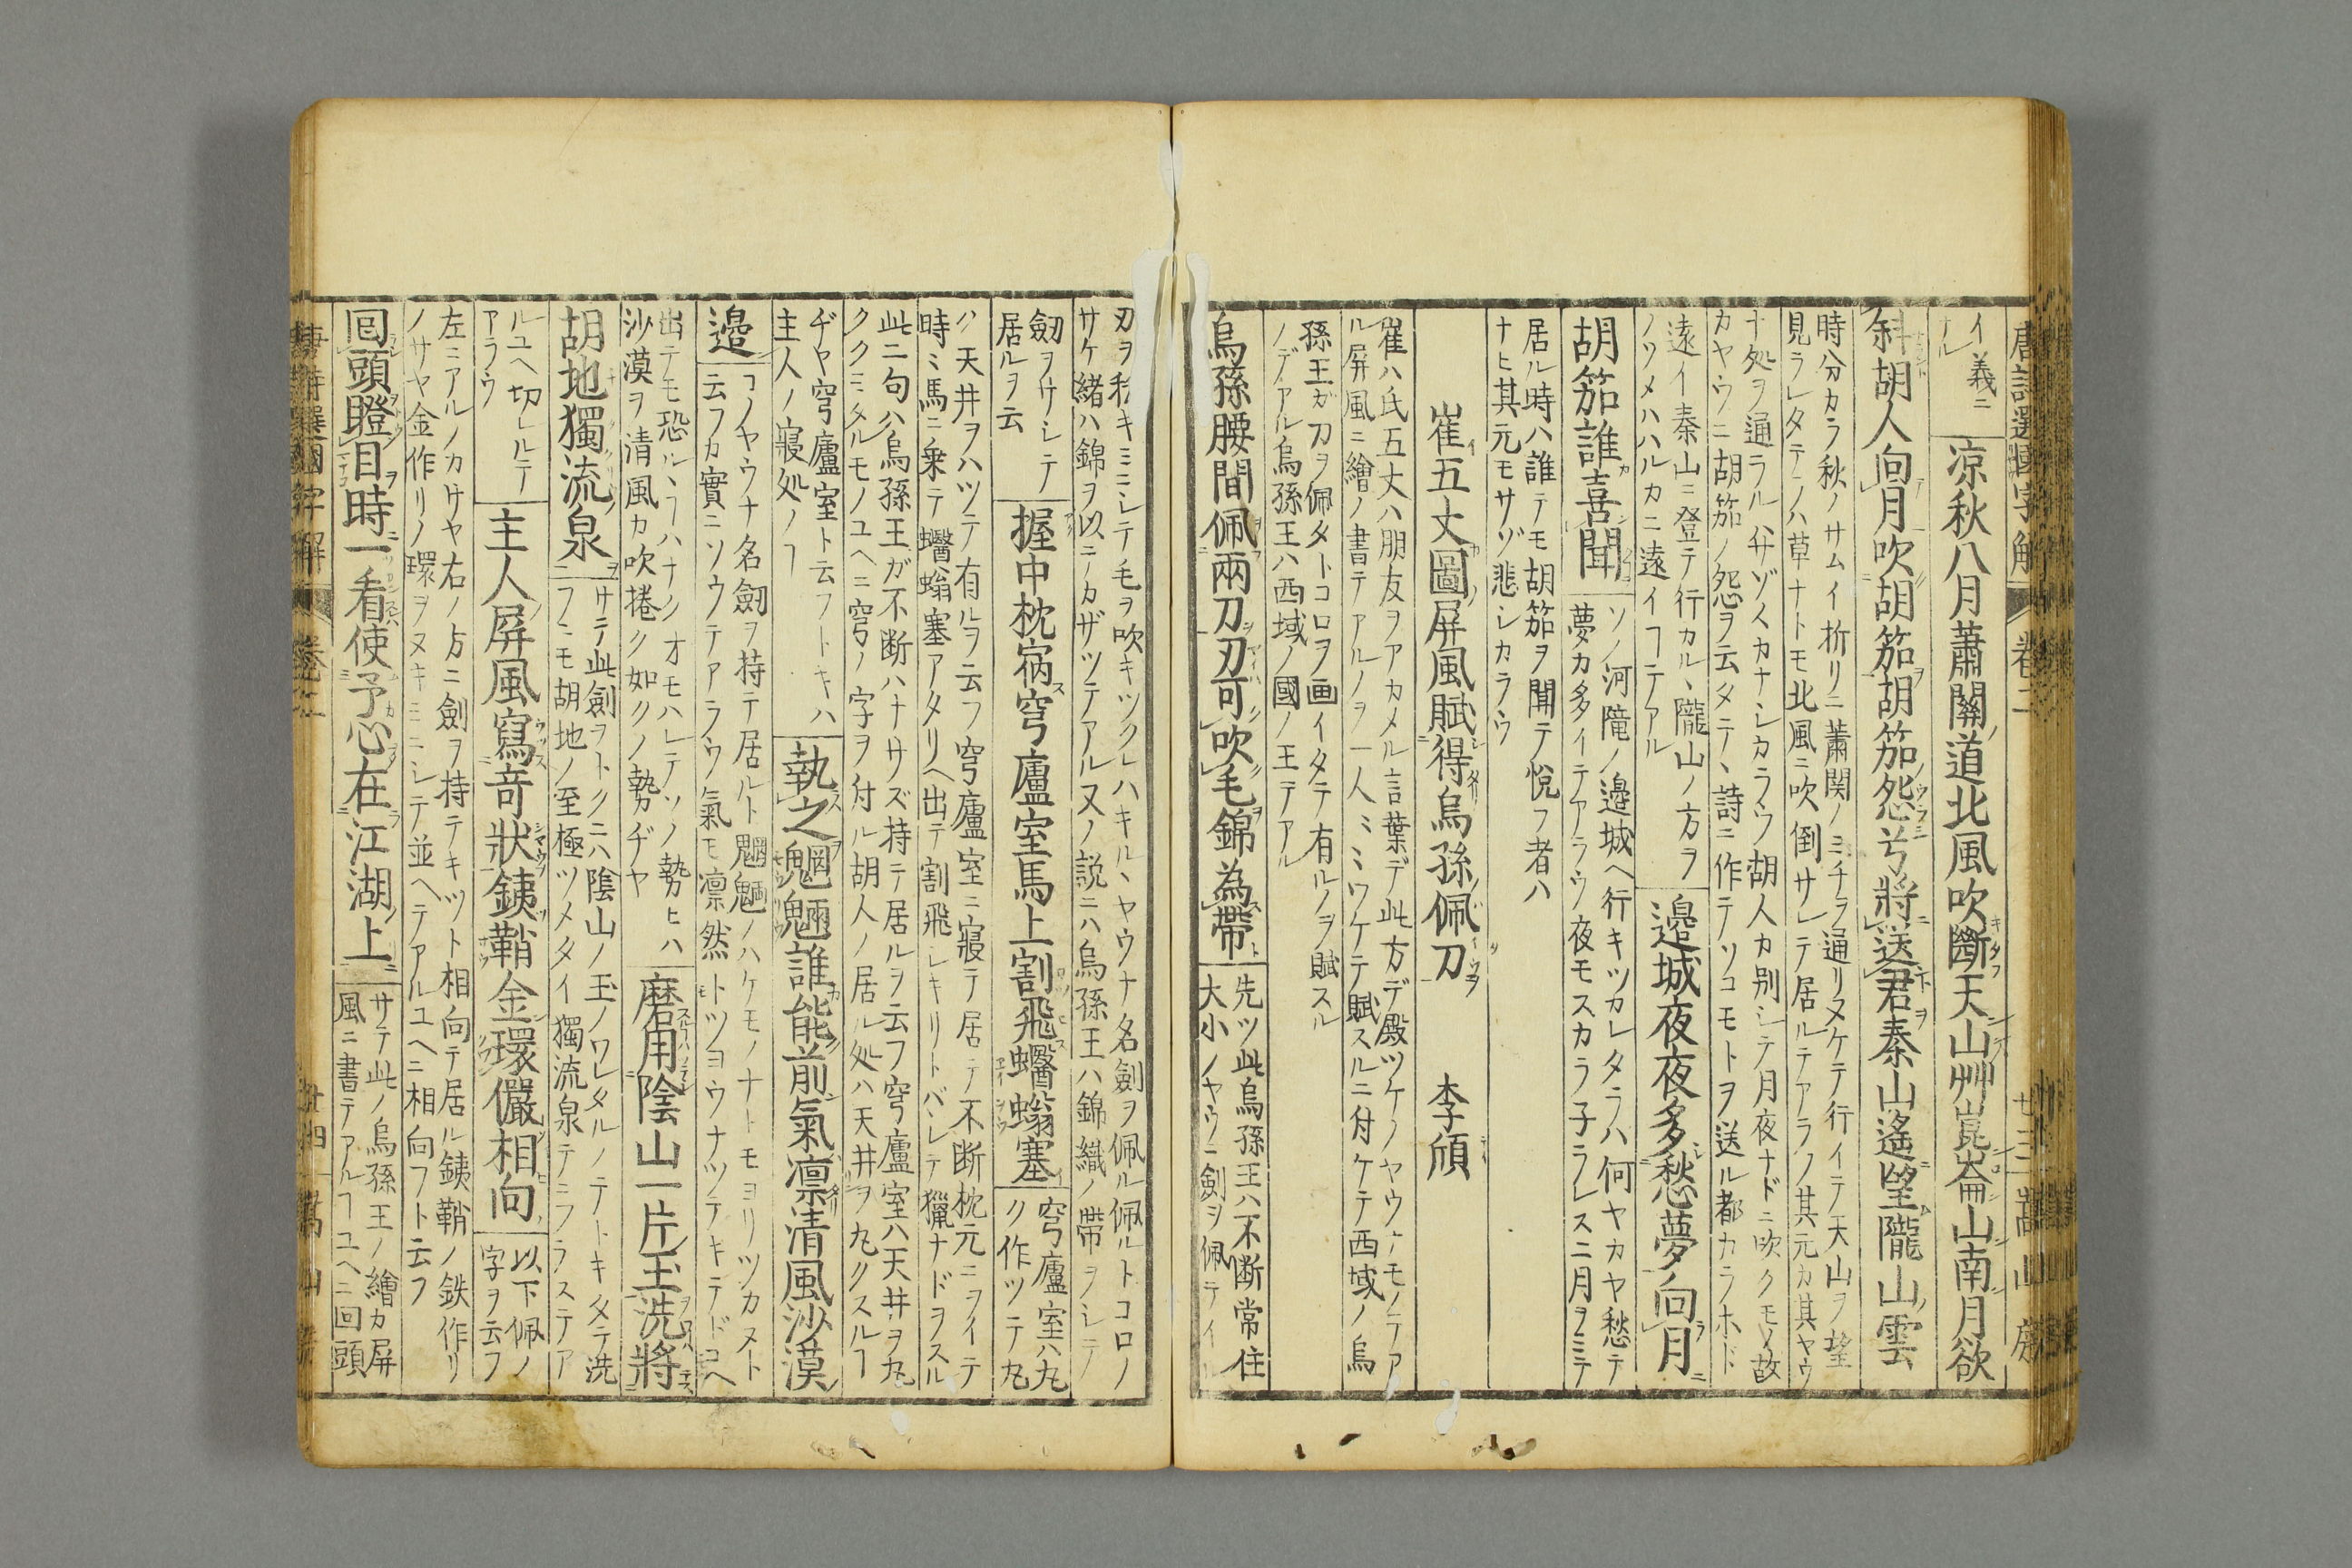 唐詩選國字解 巻二 廿三 嵩山房
イ義ニ
ナル
凉秋八月蕭關道北風吹斷天山艸崑崙山南月欲
斜胡人向月吹胡笳胡笳怨兮將送君秦山遙望隴山雲
時分カラ秋ノサムイ折リニ蕭関ノミチヲ通リヌケテ行イテ天山ヲ望
見ラレタテラハ草ナトモ北風ニ吹倒サレテ居ルテアラフ其元カ其ヤウ
ナ処ヲ通ラルハサゾカナシカラウ胡人カ別シテ月夜ナドニ吹クモノ故
カヤウニ胡笳ノ怨ヲ云タテ、詩ニ作テソコモトヲ送ル都カラホド
遠イ秦山ニ登テ行カル、隴山ノ方ヲ
ノソメハハルカニ遠イヿテアル
邉城夜夜多愁夢向月
胡笳誰喜聞
ソノ河隴ノ邉城ヘ行キツカレタラハ何ヤカヤ愁テ
夢カ多イテアラウ夜モスカラ子ラレス二月ヲミテ
居ル時ハ誰テモ胡笳ヲ聞テ悦フ者ハ
ナヒ其元モサゾ悲シカラウ
崔五丈圖屏風賦得烏孫佩刀 李頎
崔ハ氏五丈ハ朋友ヲアカメル言葉デ此方デ殿ツケノヤウナモノテアル
ル屏風ニ繪ノ書テアルノヲ一人ミミウケテ賦スルニ付ケテ西域ノ烏
孫王ガ刀ヲ佩タトコロヲ画イタテ有ルノヲ賦スル
ノデアル烏孫王ハ西域ノ國ノ王テアル
烏孫腰間佩兩刀刃可吹毛錦為帶
先ツ此烏孫王ハ不断常住
大小ノヤウニ劍ヲ佩テイル
刃ヲ秋キミニシテ毛ヲ吹キツクレハキル、ヤウナ名劍ヲ佩ル佩ルトコロノ
サケ緒ハ錦ヲ以ニテカザツテアル又ノ説ニハ烏孫王ハ錦織ノ帶ヲシテ
劒ヲサシテ
居ルヲ云
握中枕宿穹廬室馬上割飛䗿螉塞
穹廬室ハ丸
ク作ツテ丸
ク天井ヲハツテ有ルヲ云フ穹廬室ニ寢テ居テ不断枕元ニヲイテ
時ミ馬ニ乗テ䗿螉塞アタリヘ出テ割飛シキリトバシテ獵ナドヲスル
此二句ハ烏孫王ガ不断ハナサズ持テ居ルヲ云フ穹廬室ハ天井ヲ丸
ククミタルモノユヘニ穹ノ字ヲ付ル胡人ノ居ル処ハ天井ヲ丸クスルヿ
ヂヤ穹廬室ト云フトキハ
主人ノ寢処ノヿ
執之魍魎誰能前氣凛清風沙漠
邉
コノヤウナ名劒ヲ持テ居ルト魍魎ノハケモノナトモヨリツカヌト
云フカ實ニソウテアラウ氣モ凛然トツヨウナツテキテドコヘ
出テモ恐ル、ヿハナクオモハレテソノ勢ヒハ
沙漠ヲ清風カ吹捲ク如クノ勢ヂヤ
磨用陰山一片玉洗將
胡地獨流泉
サテ此劍ヲトクニハ陰山ノ玉ノワレタルノテトキタテ洗
フニモ胡地ノ至極ツメタイ獨流泉テニフラステア
ルユヘ切レルテ
アラウ
主人屏風寫竒狀銕鞘金環儼相向
以下佩ノ
字ヲ云フ
左ニアルノカサヤ右ノ方ニ劍ヲ持テキツト相向テ居ル銕鞘ノ鉄作リ
ノサヤ金作リノ環ヲヌキミニシテ並ヘテアルユヘニ相向フト云フ
囘頭瞪目時一看使予心在江湖上
サテ此ノ烏孫王ノ繪カ屏
風ニ書テアルヿユヘニ回頭
唐詩選國字解 巻二 廿四 嵩山房